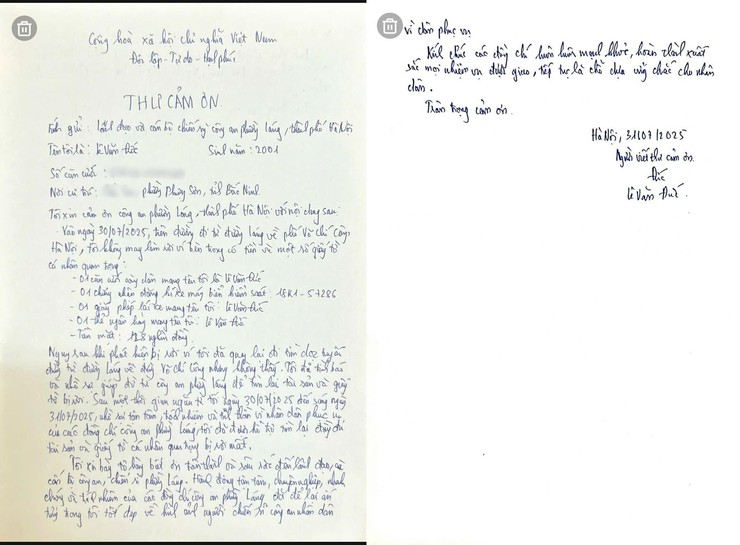 Cộng hoà xã hội chủ nghĩa Việt Nam
Độc lập - Tự do - Hạnh phúc
THƯ CẢM ƠN
Kính gửi: Lãnh đạo và cán bộ chiến sỹ công an phường Láng, thành phố Hà Nội
Tên tôi là: Lê Văn Đức Sinh năm: 2001
Số căn cước:
Nơi cư trú: phường Phượng Sơn, tỉnh Bắc Ninh
Tôi xin cảm ơn công an phường Láng, thành phố Hà Nội với nội dung sau:
Vào ngày 30/07/2025, trên đường đi từ đường Láng về phố Võ Chí Công,
Hà Nội, tôi không may làm rơi ví bên trong có tiền và một số giấy tờ
cá nhân quan trọng:
- 01 căn cước công dân mang tên tôi là Lê Văn Đức
- 01 chứng nhận đăng kí xe máy biển kiểm soát: 18K1-57286
- 01 giấy phép lái xe mang tên tôi: Lê Văn Đức
- 01 thẻ ngân hàng mang tên tôi: Lê Văn Đức
- Tiền mặt: nghìn đồng.
Ngay sau khi phát hiện bị rơi ví tôi đã quay lại đi tìm dọc tuyến
đường từ đường Láng về đường Võ Chí Công nhưng không thấy. Tôi đã trình báo
và nhờ sự giúp đỡ từ công an phường Láng để tìm lại tài sản và giấy
tờ bị rơi. Sau một thời gian ngắn từ tối ngày 30/07/2025 đến sáng ngày
31/07/2025, nhờ sự tận tâm, trách nhiệm và tinh thần vì nhân dân phục vụ
của các đồng chí công an phường Láng, tôi đã được hỗ trợ tìm lại đầy đủ
tài sản và giấy tờ cá nhân quan trọng bị rơi mất.
Tôi xin bày tỏ lòng biết ơn chân thành và sâu sắc đến lãnh đạo, và
cán bộ công an, chiến sĩ phường Láng. Hành động tận tâm, chuyên nghiệp, nhanh
chóng và trách nhiệm của các đồng chí công an phường Láng đã để lại ấn
tượng trong tôi tốt đẹp về hình ảnh người chiến sĩ công an nhân dân
vì dân phục vụ
Kính chúc các đồng chí luôn luôn mạnh khoẻ, hoàn thành xuất
sắc mọi nhiệm vụ được giao, tiếp tục là chỗ dựa vững chắc cho nhân
dân.
Trân trọng cảm ơn.
Hà Nội, 31/07/2025
Người viết thư cảm ơn.
Đức
Lê Văn Đức.